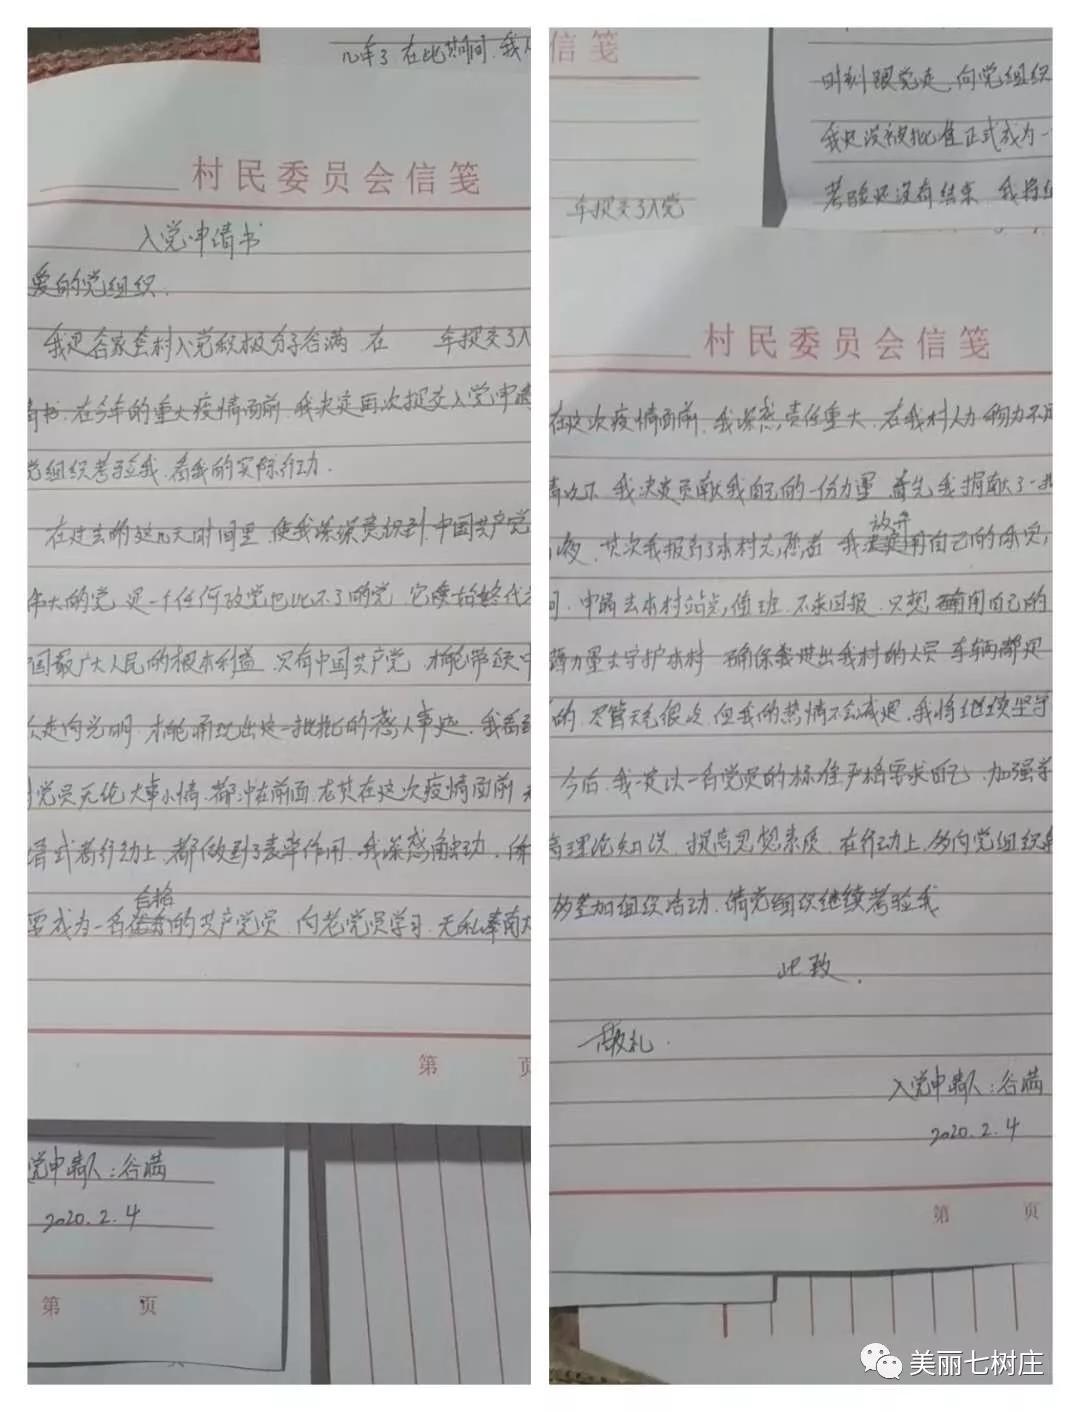 几年了 在此期间,我
村民委员会信笺
入党申请书
爱的党组织.
我是谷家查村入党积极分子谷满 在 年提交了入
书.在今年的重大疫情面前 我决定再次提交入党申请
党组织考验我.看我的实际行动.
在过去的这几天时间里.使我深深意识到.中国共产党
伟大的党 是一个任何政党也比不了的党 它始终代
国最广大人民的根本利益 只有中国共产党 才能带领中
走向光明 才能涌现出这一批批的感人事迹.我看到
党员无论大事小情.都冲在前面.尤其在这次疫情面前
行动上,都做到了表率作用.我深感触动.
合格
要成为一名 的共产党员 向老党员学习.无私奉献
第 页
党申请人:谷满
2020.2.4
第 页
信笺
年提交了入党
时刻跟党走,向党组织
我还没被批准正式成为一
考验还没有结束 我将继
村民委员会信笺
在这次疫情面前.我深感,责任重大.在我村人力物力不
情况下.我决定贡献我自己的一份力量 首先我捐献了一
放弃
液.其次我报名了本村志愿者 我 用自己的休息,
间.申请去本村站岗,值班.不求回报.只想 用自己的
薄力量去守护本村 确保我进出我村的人员 车辆都是
的.尽管天气很冷.但我的热情不会减退.我将继续坚守
今后.我一定以一名党员的标准严格要求自己.加强学
习理论知识.提高思想素质.在行动上,多向党组织
多参加组织活动.请党组织继续考验我
此致.
敬礼.
入党申请人:谷满
2020.2.4
第 页
美丽七树庄